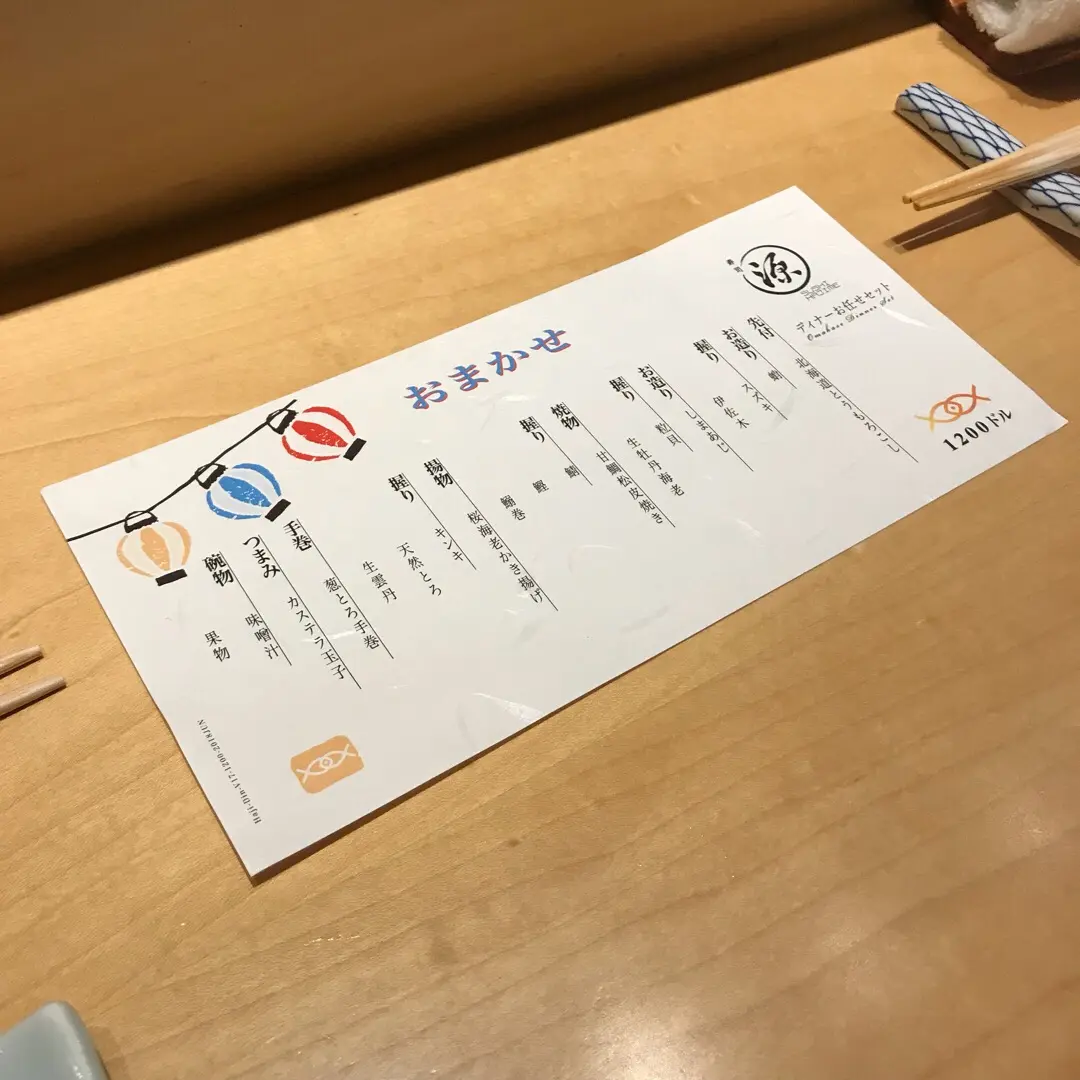 寿司 源
SUSHI HAJIME
ディナーお任せセット
Omakase Dinner Set
1200ドル
おまかせ
先付 北海道とうもろこし
お造り 蛸
スズキ
握り 伊佐木
しまあじ
お造り 粒貝
握り 生牡丹海老
焼物 甘鯛松皮焼き
握り
鰹
鰯巻
揚物 桜海老かき揚げ
握り キンキ
天然とろ
生雲丹
手巻 葱とろ手巻
つまみ カステラ玉子
碗物 味噌汁
果物